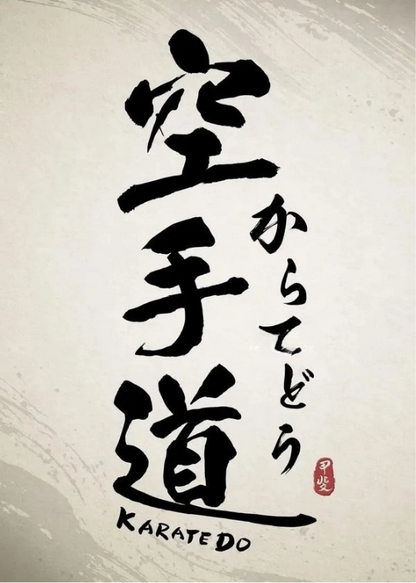 空手道
からてどう
KARATEDO
甲斐